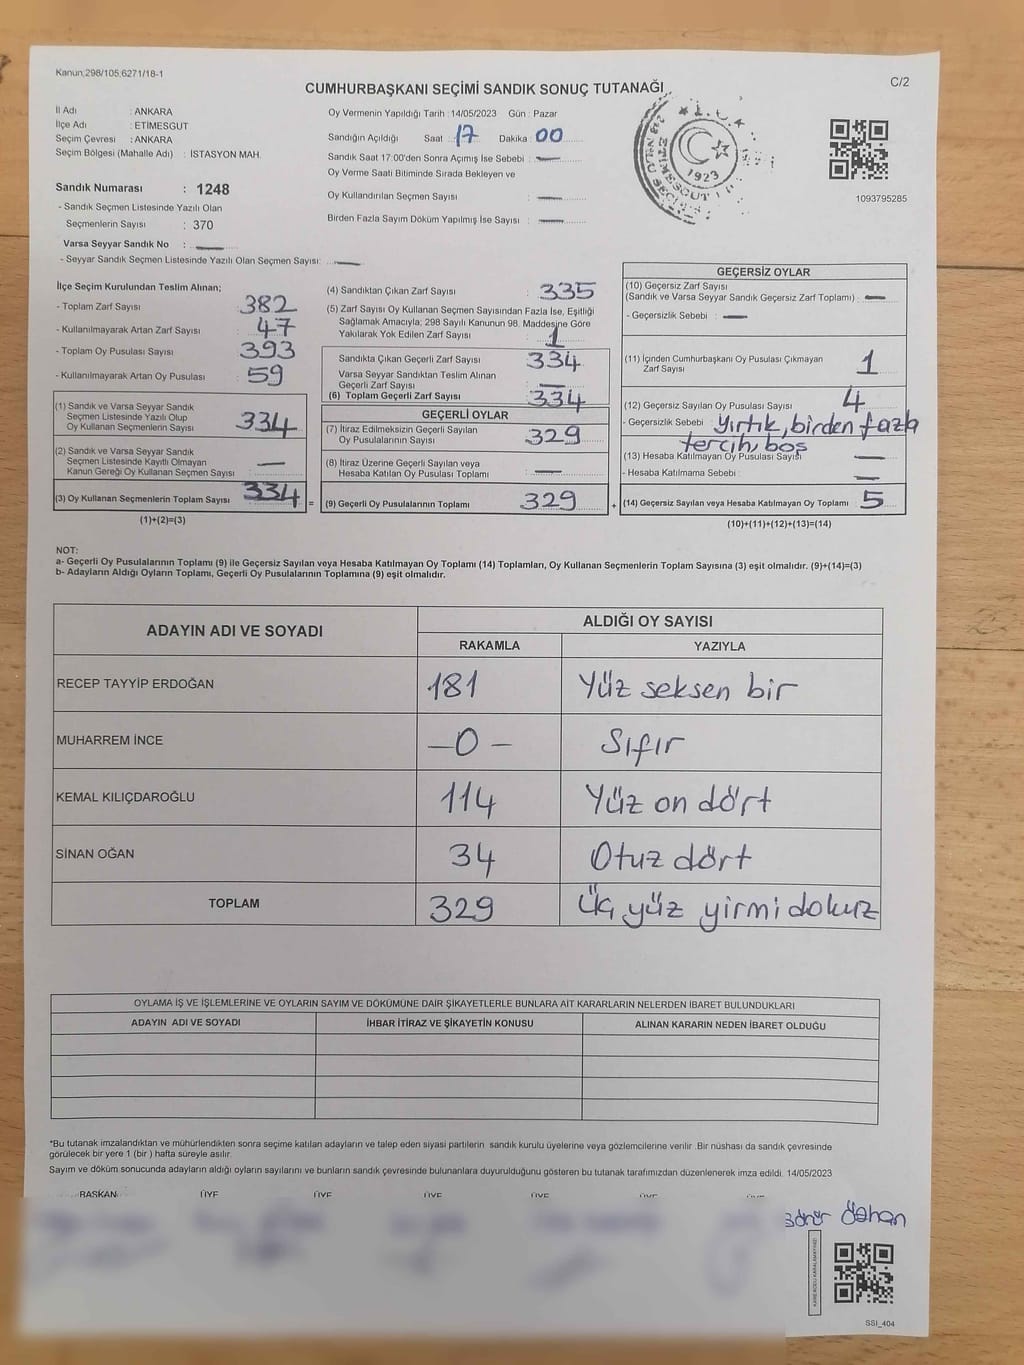 Kanun;298/105;6271/18-1
C/2
CUMHURBAŞKANI SEÇİMİ SANDIK SONUÇ TUTANAĞI
İl Adı : ANKARA
İlçe Adı : ETİMESGUT
Seçim Çevresi : ANKARA
Seçim Bölgesi (Mahalle Adı) : İSTASYON MAH.
Sandık Numarası : 1248
- Sandık Seçmen Listesinde Yazılı Olan
Seçmenlerin Sayısı : 370
Varsa Seyyar Sandık No :
- Seyyar Sandık Seçmen Listesinde Yazılı Olan Seçmen Sayısı:
Oy Vermenin Yapıldığı Tarih : 14/05/2023 Gün : Pazar
Sandığın Açıldığı Saat : 17 Dakika : 00
Sandık Saat 17:00'den Sonra Açımış İse Sebebi :
Oy Verme Saati Bitiminde Sırada Bekleyen ve
Oy Kullandırılan Seçmen Sayısı :
Birden Fazla Sayım Döküm Yapılmış İse Sayısı :
T.C.
ETİMESGUT
1923
1093795285
İlçe Seçim Kurulundan Teslim Alınan;
- Toplam Zarf Sayısı : 382
- Kullanılmayarak Artan Zarf Sayısı : 47
- Toplam Oy Pusulası Sayısı : 393
- Kullanılmayarak Artan Oy Pusulası : 59
(1) Sandık ve Varsa Seyyar Sandık
Seçmen Listesinde Yazılı Olup
Oy Kullanan Seçmenlerin Sayısı : 334
(2) Sandık ve Varsa Seyyar Sandık
Seçmen Listesinde Kayıtlı Olmayan
Kanun Gereği Oy Kullanan Seçmen Sayısı :
(3) Oy Kullanan Seçmenlerin Toplam Sayısı : 334
(1)+(2)=(3)
(4) Sandıktan Çıkan Zarf Sayısı : 335
(5) Zarf Sayısı Oy Kullanan Seçmen Sayısından Fazla İse, Eşitliği
Sağlamak Amacıyla; 298 Sayılı Kanunun 98. Maddesine Göre
Yakılarak Yok Edilen Zarf Sayısı : 1
Sandıkta Çıkan Geçerli Zarf Sayısı : 334
Varsa Seyyar Sandıktan Teslim Alınan
Geçerli Zarf Sayısı :
(6) Toplam Geçerli Zarf Sayısı : 334
GEÇERLİ OYLAR
(7) İtiraz Edilmeksizin Geçerli Sayılan
Oy Pusulalarının Sayısı : 329
(8) İtiraz Üzerine Geçerli Sayılan veya
Hesaba Katılan Oy Pusulası Toplamı :
= (9) Geçerli Oy Pusulalarının Toplamı : 329
GEÇERSİZ OYLAR
(10) Geçersiz Zarf Sayısı
(Sandık ve Varsa Seyyar Sandık Geçersiz Zarf Toplamı) :
- Geçersizlik Sebebi :
(11) İçinden Cumhurbaşkanı Oy Pusulası Çıkmayan
Zarf Sayısı : 1
(12) Geçersiz Sayılan Oy Pusulası Sayısı : 4
- Geçersizlik Sebebi : Yırtık, birden fazla
tercih, boş
(13) Hesaba Katılmayan Oy Pusulası Sayısı :
- Hesaba Katılmama Sebebi :
+ (14) Geçersiz Sayılan veya Hesaba Katılmayan Oy Toplamı : 5
(10)+(11)+(12)+(13)=(14)
NOT:
a- Geçerli Oy Pusulalarının Toplamı (9) ile Geçersiz Sayılan veya Hesaba Katılmayan Oy Toplamı (14) Toplamları, Oy Kullanan Seçmenlerin Toplam Sayısına (3) eşit olmalıdır. (9)+(14)=(3)
b- Adayların Aldığı Oyların Toplamı, Geçerli Oy Pusulalarının Toplamına (9) eşit olmalıdır.
ADAYIN ADI VE SOYADI ALDIĞI OY SAYISI
RAKAMLA YAZIYLA
RECEP TAYYİP ERDOĞAN 181 Yüz seksen bir
MUHARREM İNCE -0- Sıfır
KEMAL KILIÇDAROĞLU 114 Yüz on dört
SİNAN OĞAN 34 Otuz dört
TOPLAM 329 Üç yüz yirmi dokuz
OYLAMA İŞ VE İŞLEMLERİNE VE OYLARIN SAYIM VE DÖKÜMÜNE DAİR ŞİKAYETLERLE BUNLARA AİT KARARLARIN NELERDEN İBARET BULUNDUKLARI
ADAYIN ADI VE SOYADI İHBAR İTİRAZ VE ŞİKAYETİN KONUSU ALINAN KARARIN NEDEN İBARET OLDUĞU
*Bu tutanak imzalandıktan ve mühürlendikten sonra seçime katılan adayların ve talep eden siyasi partilerin sandık kurulu üyelerine veya gözlemcilerine verilir .Bir nüshası da sandık çevresinde
görülecek bir yere 1 (bir ) hafta süreyle asılır.
Sayım ve döküm sonucunda adayların aldığı oyların sayılarını ve bunların sandık çevresinde bulunanlara duyurulduğunu gösteren bu tutanak tarafımızdan düzenlenerek imza edildi. 14/05/2023
BAŞKAN ÜYE ÜYE ÜYE ÜYE ÜYE ÜYE
SSI_404